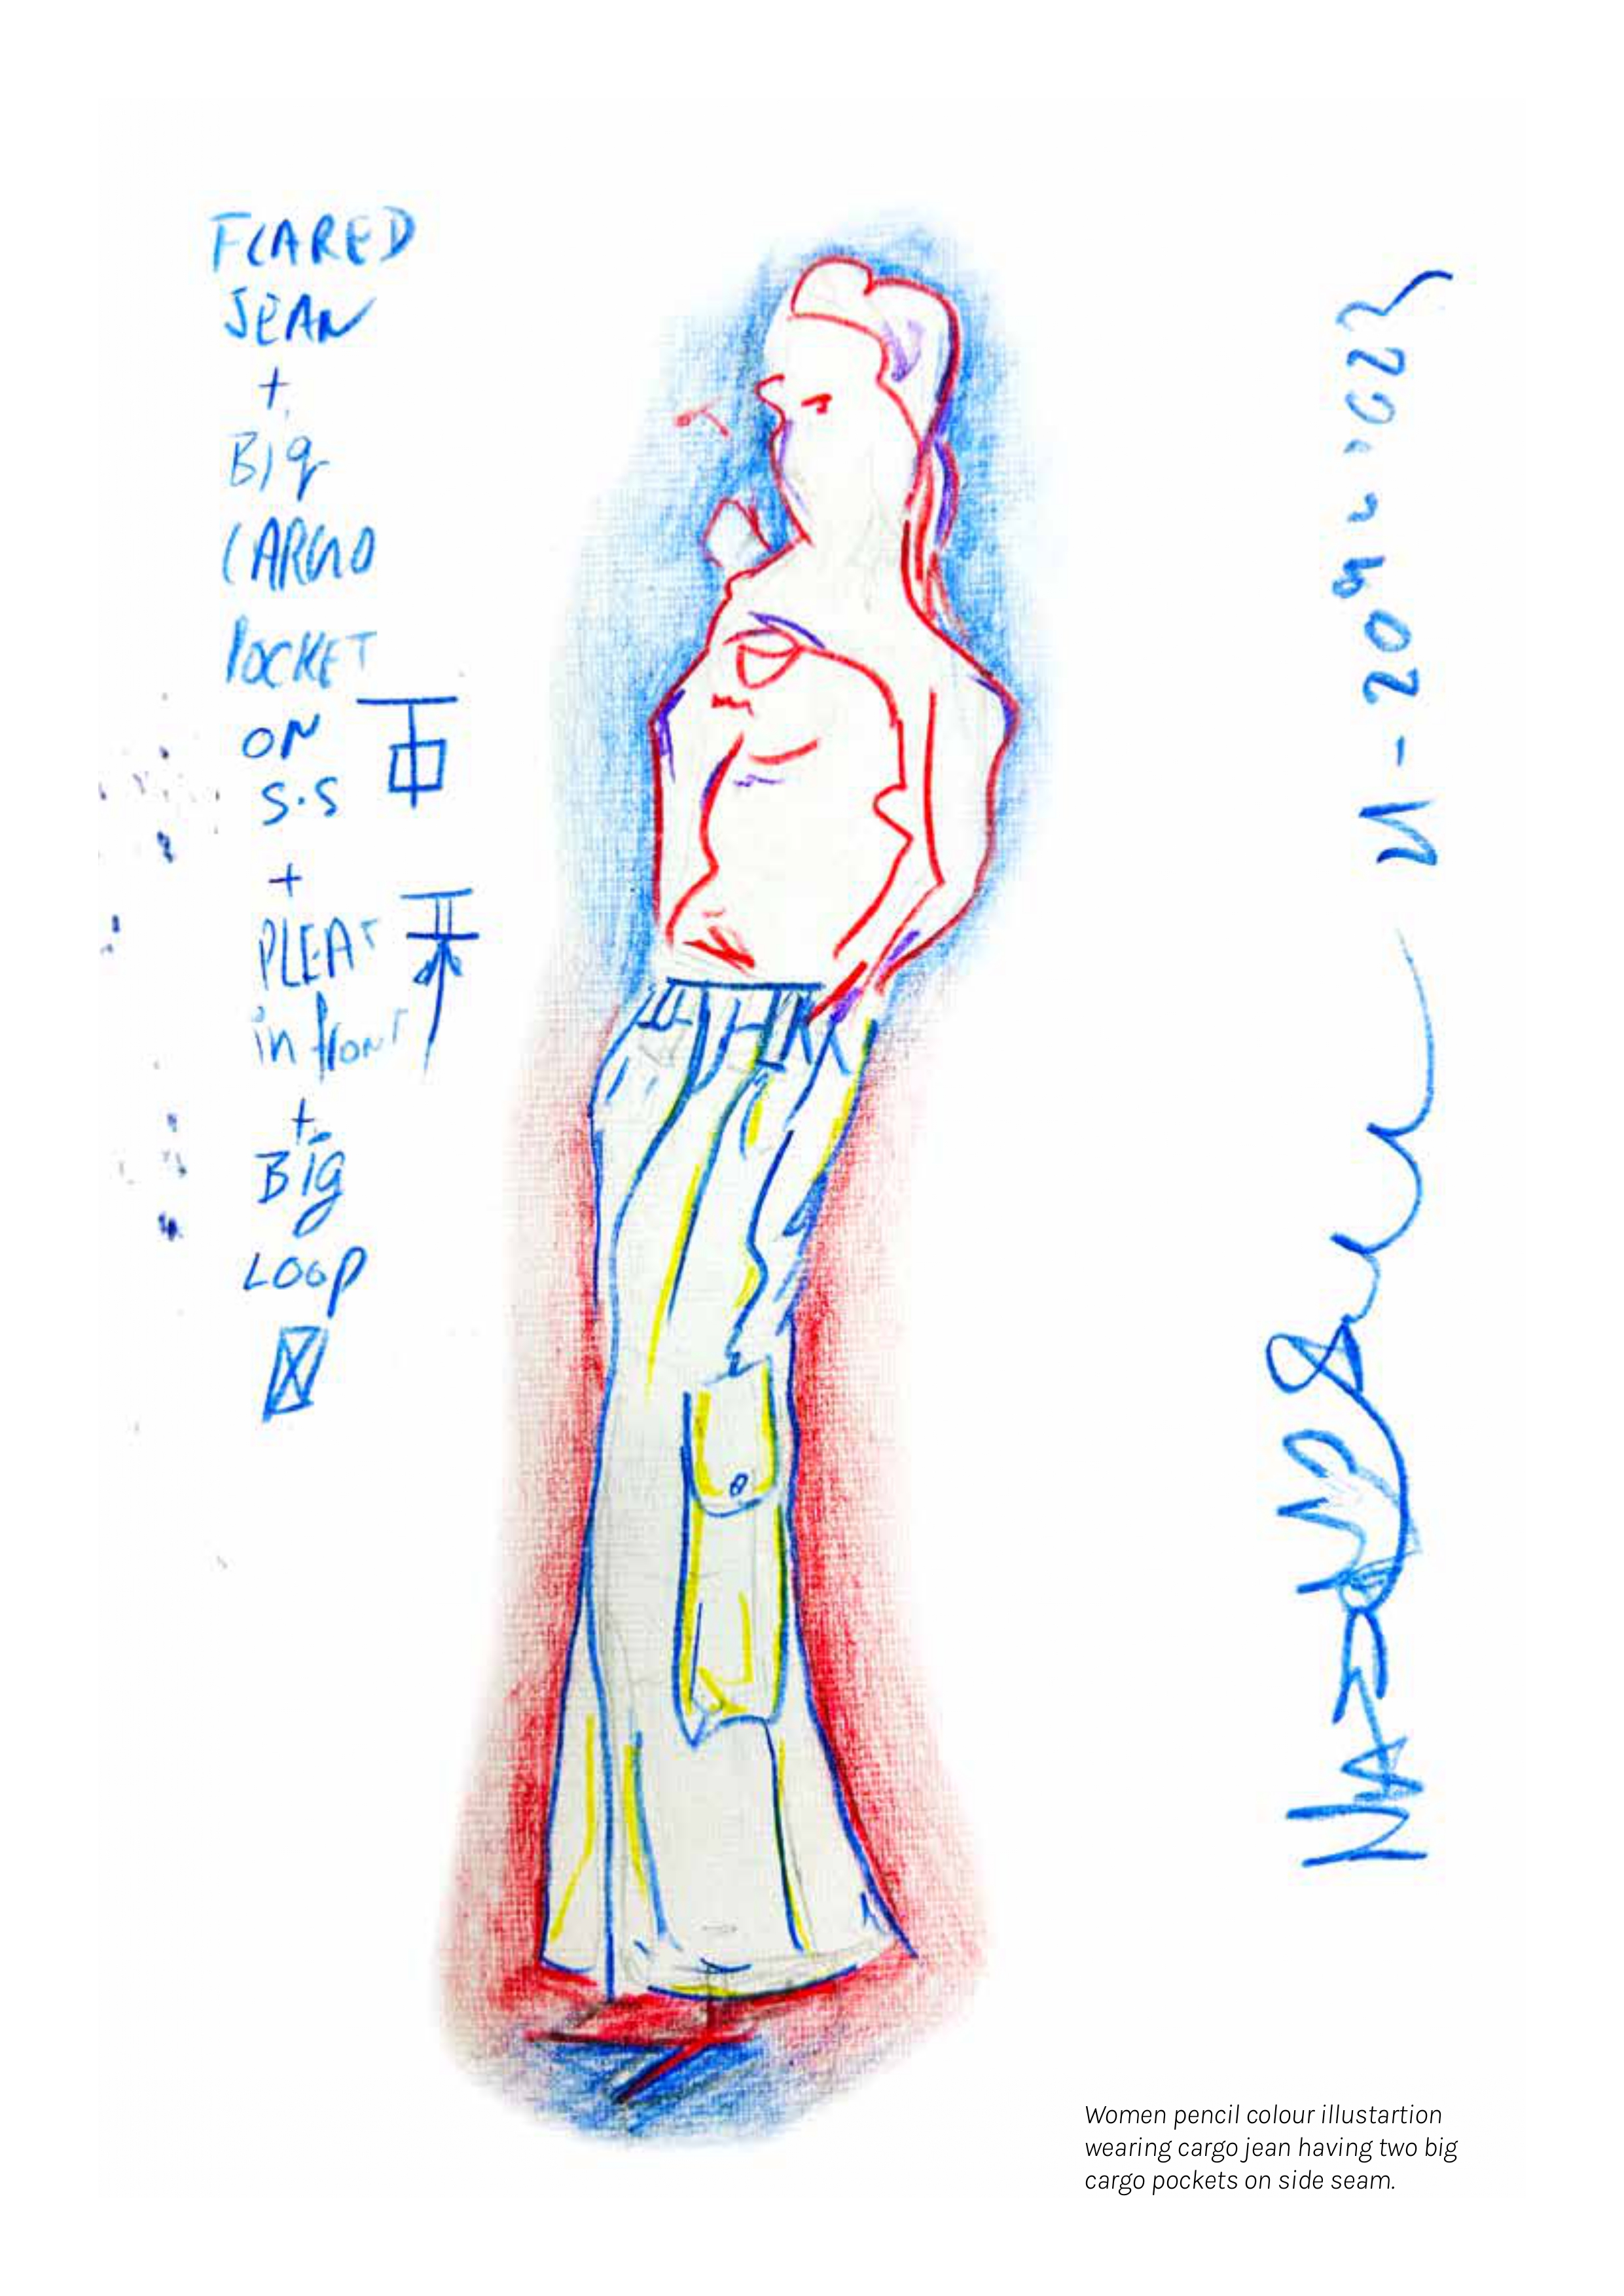 FLARED
JEAN
+
Big
CARGO
POCKET
ON
S.S
+
PLEAT
in front
+
Big
LOOP
Women pencil colour illustartion
wearing cargo jean having two big
cargo pockets on side seam.